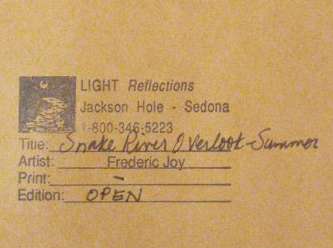 LIGHT Reflections
Jackson Hole - Sedona
1-800-346-5223
Title: Snake River Overlook-Summer
Artist: Frederic Joy
Print: -
Edition: OPEN